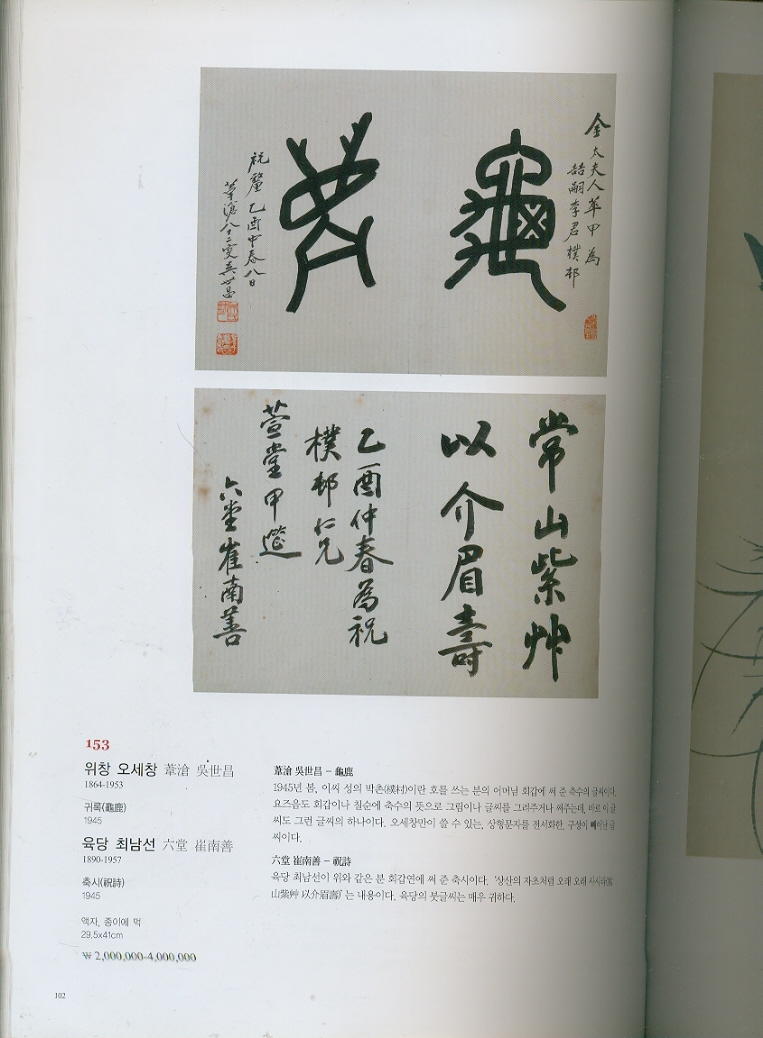 金太夫人華甲爲
喆嗣李君樸邨
龜
鹿
祝釐 乙酉中春八日
葦滄八十二叟吳世昌
常山紫艸
以介眉壽
乙酉仲春爲祝
樸邨仁兄
萱堂甲筵
六堂崔南善
153
위창 오세창 葦滄 吳世昌
1864-1953
귀록(龜鹿)
1945
육당 최남선 六堂 崔南善
1890-1957
축시(祝詩)
1945
액자, 종이에 먹
29.5x41cm
₩ 2,000,000-4,000,000
葦滄 吳世昌 – 龜鹿
1945년 봄, 이씨 성의 박촌(樸村)이란 호를 쓰는 분의 어머님 회갑에 써 준 축수의 글씨이다.
요즈음도 회갑이나 칠순에 축수의 뜻으로 그림이나 글씨를 그려주거나 써주는데, 바로 이 글
씨도 그런 글씨의 하나이다. 오세창만이 쓸 수 있는, 상형문자를 전서화한, 구성이 빼어난 글
씨이다.
六堂 崔南善 – 祝詩
육당 최남선이 위와 같은 분 회갑연에 써 준 축시이다. '상산의 자초처럼 오래 오래 사시라(常
山紫艸 以介眉壽)'는 내용이다. 육당의 붓글씨는 매우 귀하다.
102